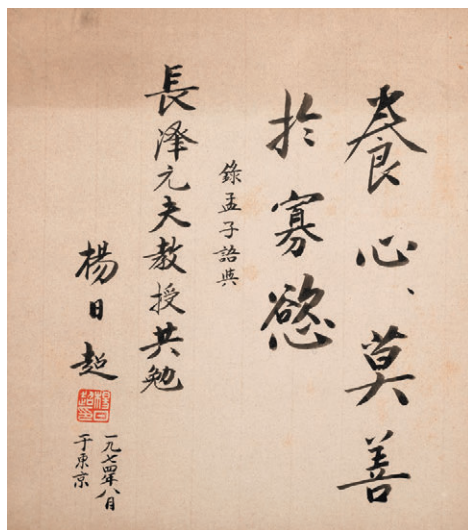 養心、莫善
於寡慾
錄孟子語與
長泽元夫教授共勉
楊日超
楊日超印
一九七四年八月
于東京